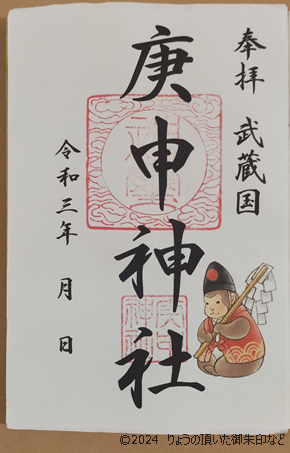 奉拝 武蔵国
庚申神社
令和三年 月 日
©2024 りょうの頂いた御朱印など